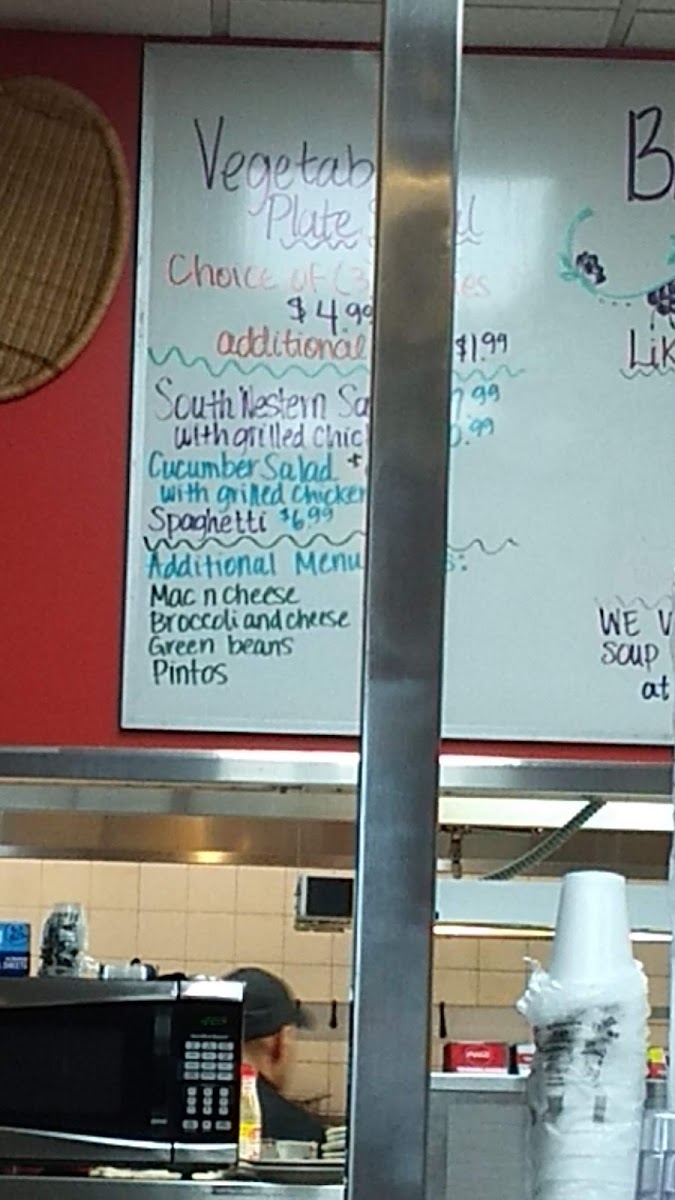 Vegetab
Plate
Choice of (3
$4.99
additional $1.99
South Western Sa
with grilled chic
Cucumber Salad $
with grilled chicken
Spaghetti $6.99
Additional Menu
Mac n cheese
Broccoli and cheese
Green beans
Pintos
B
Lik
WE V
soup
at